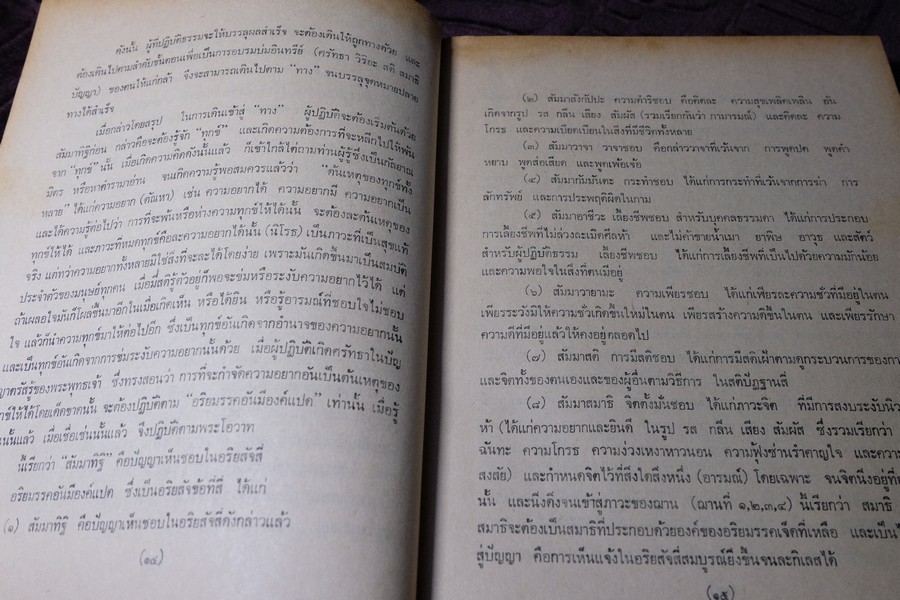 ดังนั้น ผู้ที่ปฏิบัติธรรมจะให้บรรลุผลสำเร็จ จะต้องเดินให้ถูกทางด้วย และ
ต้องเดินไปตามลำดับขั้นตอนเพื่อเป็นการอบรมบ่มอินทรีย์ (ศรัทธา วิริยะ สติ สมาธิ
ปัญญา) ของตนให้แก่กล้า จึงจะสามารถเดินไปตาม "ทาง" จนบรรลุจุดหมายปลาย
ทางได้สำเร็จ
เมื่อกล่าวโดยสรุป ในการเดินเข้าสู่ "ทาง" ผู้ปฏิบัติจะต้องเริ่มต้นด้วย
สัมมาทิฐิก่อน กล่าวคือจะต้องรู้จัก "ทุกข์" และเกิดความต้องการที่จะหลีกไปให้พ้น
จาก "ทุกข์" นั้น เมื่อเกิดความคิดดังนั้นแล้ว ก็เข้าใกล้ไต่ถามท่านผู้รู้ซึ่งเป็นกัลยาณ
มิตร หรือหาตำรามาอ่าน จนเกิดความรู้พอสมควรแล้วว่า "ต้นเหตุของทุกข์ทั้ง
หลาย" ได้แก่ความอยาก (ตัณหา) เช่น ความอยากได้ ความอยากมี ความอยากเป็น
และได้ความรู้ต่อไปว่า การที่จะพ้นหรือห่างความทุกข์ให้ได้นั้น จะต้องละต้นเหตุของ
ทุกข์ให้ได้ และภาวะที่หมดทุกข์คือละความอยากได้นั้น (นิโรธ) เป็นภาวะที่เป็นสุขแท้
จริง แต่ทว่าความอยากทั้งหลายมิใช่สิ่งที่จะละได้โดยง่าย เพราะมันเกิดขึ้นมาเป็นสมบัติ
ประจำตัวของมนุษย์ทุกคน เมื่อมีสติรู้ตัวอยู่ก็พอจะข่มหรือระงับความอยากไว้ได้ แต่
ถ้าเผลอใจมันก็โผล่ขึ้นมาอีกในเมื่อเกิดเห็น หรือได้ยิน หรือรู้อารมณ์ที่ชอบใจไม่ชอบ
ใจ แล้วก็นำความทุกข์มาให้ต่อไปอีก ซึ่งเป็นทุกข์อันเกิดจากอำนาจของความอยากนั้น
และเป็นทุกข์อันเกิดจากการข่มระงับความอยากนั้นด้วย เมื่อผู้ปฏิบัติเกิดศรัทธาในปัญ
ญาตรัสรู้ของพระพุทธเจ้า ซึ่งทรงสอนว่า การที่จะกำจัดความอยากอันเป็นต้นเหตุของ
ทุกข์ให้ได้โดยเด็ดขาดนั้น จะต้องปฏิบัติตาม "อริยมรรคอันมีองค์แปด" เท่านั้น เมื่อรู้
แล้ว เมื่อเชื่อเช่นนั้นแล้ว จึงปฏิบัติตามพระโอวาท
นี้เรียกว่า "สัมมาทิฐิ" คือปัญญาเห็นชอบในอริยสัจสี่
อริยมรรคอันมีองค์แปด ซึ่งเป็นอริยสัจข้อที่สี่ ได้แก่
(๑) สัมมาทิฐิ คือปัญญาเห็นชอบในอริยสัจสี่ดังกล่าวแล้ว
(๑๔)
(๒) สัมมาสังกัปปะ ความดำริชอบ คือคิดละ ความสุขเพลิดเพลิน อัน
เกิดจากรูป รส กลิ่น เสียง สัมผัส (รวมเรียกกันว่า กามารมณ์) และคิดละ ความ
โกรธ และความเบียดเบียนในสิ่งที่มีชีวิตทั้งหลาย
(๓) สัมมาวาจา วาจาชอบ คือกล่าววาจาที่เว้นจาก การพูดปด พูดคำ
หยาบ พูดส่อเสียด และพูดเพ้อเจ้อ
(๔) สัมมากัมมันตะ กระทำชอบ ได้แก่การกระทำที่เว้นจากการฆ่า การ
ลักทรัพย์ และการประพฤติผิดในกาม
(๕) สัมมาอาชีวะ เลี้ยงชีพชอบ สำหรับบุคคลธรรมดา ได้แก่การประกอบ
การเลี้ยงชีพที่ไม่ล่วงละเมิดศีลห้า และไม่ค้าขายน้ำเมา ยาพิษ อาวุธ และสัตว์
สำหรับผู้ปฏิบัติธรรม เลี้ยงชีพชอบ ได้แก่การเลี้ยงชีพที่เป็นไปด้วยความมักน้อย
และความพอใจในสิ่งที่ตนมีอยู่
(๖) สัมมาวายามะ ความเพียรชอบ ได้แก่เพียรละความชั่วที่มีอยู่ในตน
เพียรระวังมิให้ความชั่วเกิดขึ้นใหม่ในตน เพียรสร้างความดีขึ้นในตน และเพียรรักษา
ความดีที่มีอยู่แล้วให้คงอยู่ตลอดไป
(๗) สัมมาสติ การมีสติชอบ ได้แก่การมีสติเฝ้าตามดูกระบวนการของกา
และจิตทั้งของตนเองและของผู้อื่นตามวิธีการ ในสติปัฏฐานสี่
(๘) สัมมาสมาธิ จิตตั้งมั่นชอบ ได้แก่ภาวะจิต ที่มีการสงบระงับนิว
ห้า (ได้แก่ความอยากและยินดี ในรูป รส กลิ่น เสียง สัมผัส ซึ่งรวมเรียกว่า
ฉันทะ ความโกรธ ความง่วงเหงาหาวนอน ความฟุ้งซ่านรำคาญใจ และความ
สงสัย) และกำหนดจิตไว้ที่สิ่งใดสิ่งหนึ่ง (อารมณ์) โดยเฉพาะ จนจิตนิ่งอยู่ที่
นั้น และนิ่งดิ่งจนเข้าสู่ภาวะของฌาน (ฌานที่ ๑,๒,๓,๔) นี้เรียกว่า สมาธิ
สมาธิจะต้องเป็นสมาธิที่ประกอบด้วยองค์ของอริยมรรคเจ็ดที่เหลือ และเป็นไ
สู่ปัญญา คือการเห็นแจ้งในอริยสัจสี่สมบูรณ์ยิ่งขึ้นจนละกิเลสได้
(๑๕)